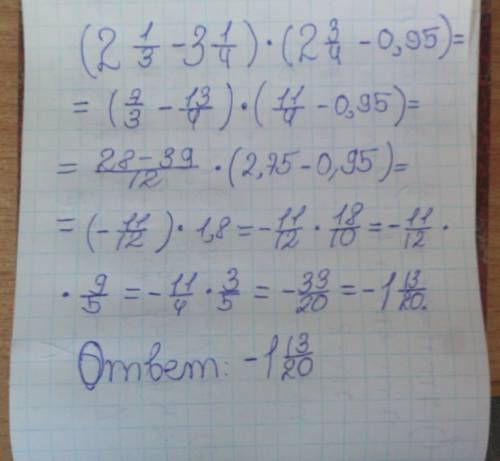 (2 1/3 - 3 1/4) · (2 3/4 - 0,95) =
= (7/3 - 13/4) · (11/4 - 0,95) =
= 28-39/12 · (2,75 - 0,95) =
= (-11/12) · 1,8 = -11/12 · 18/10 = -11/12 ·
· 9/5 = -11/4 · 3/5 = -33/20 = -1 13/20.
Ответ: -1 13/20